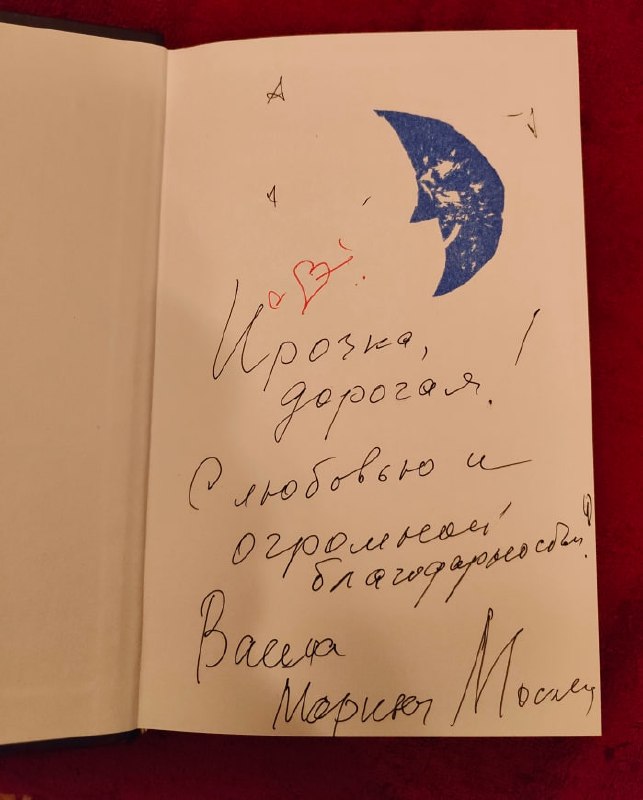 Ирочка,
дорогая!
С любовью и
огромной
благодарностью!
Ваша
Марина